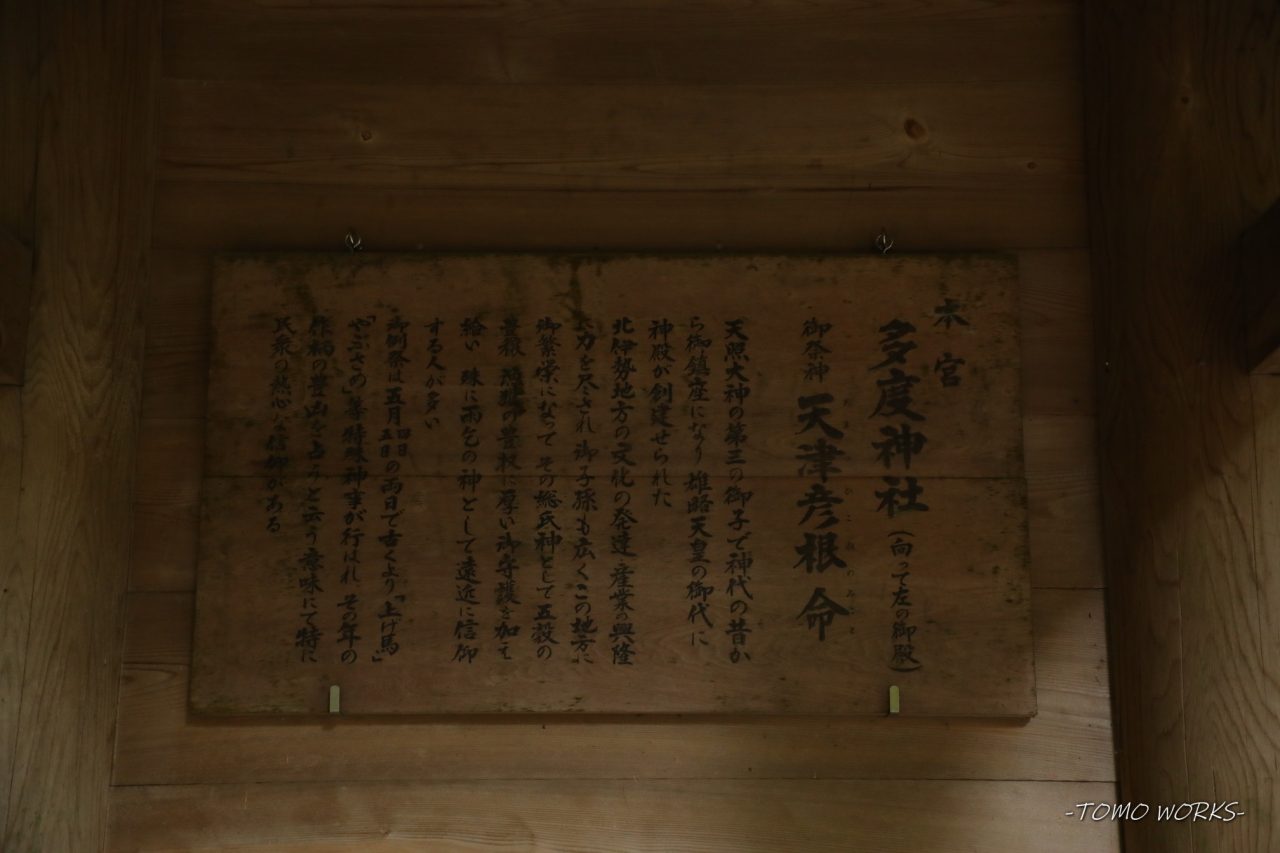 本宮
多度神社(向って左の御殿)
御祭神 天津彦根命
天照大神の第三の御子で神代の昔か
ら御鎮座になり 雄略天皇の御代に
神殿が創建せられた
北伊勢地方の文化の発達 産業の興隆
に力を尽され 御子孫も広くこの地方に
御繁栄になって その総氏神として五穀の
豊穣 の豊収に厚い御守護を加え
給い 殊に雨乞の神として遠近に信仰
する人が多い
御例祭は五月四日五日の両日で古くより「上げ馬」
「やぶさめ」等特殊神事が行はれ その年の
作柄の豊凶を占うと云う意味にて特に
民衆の熱心な信仰がある
-TOMO WORKS-